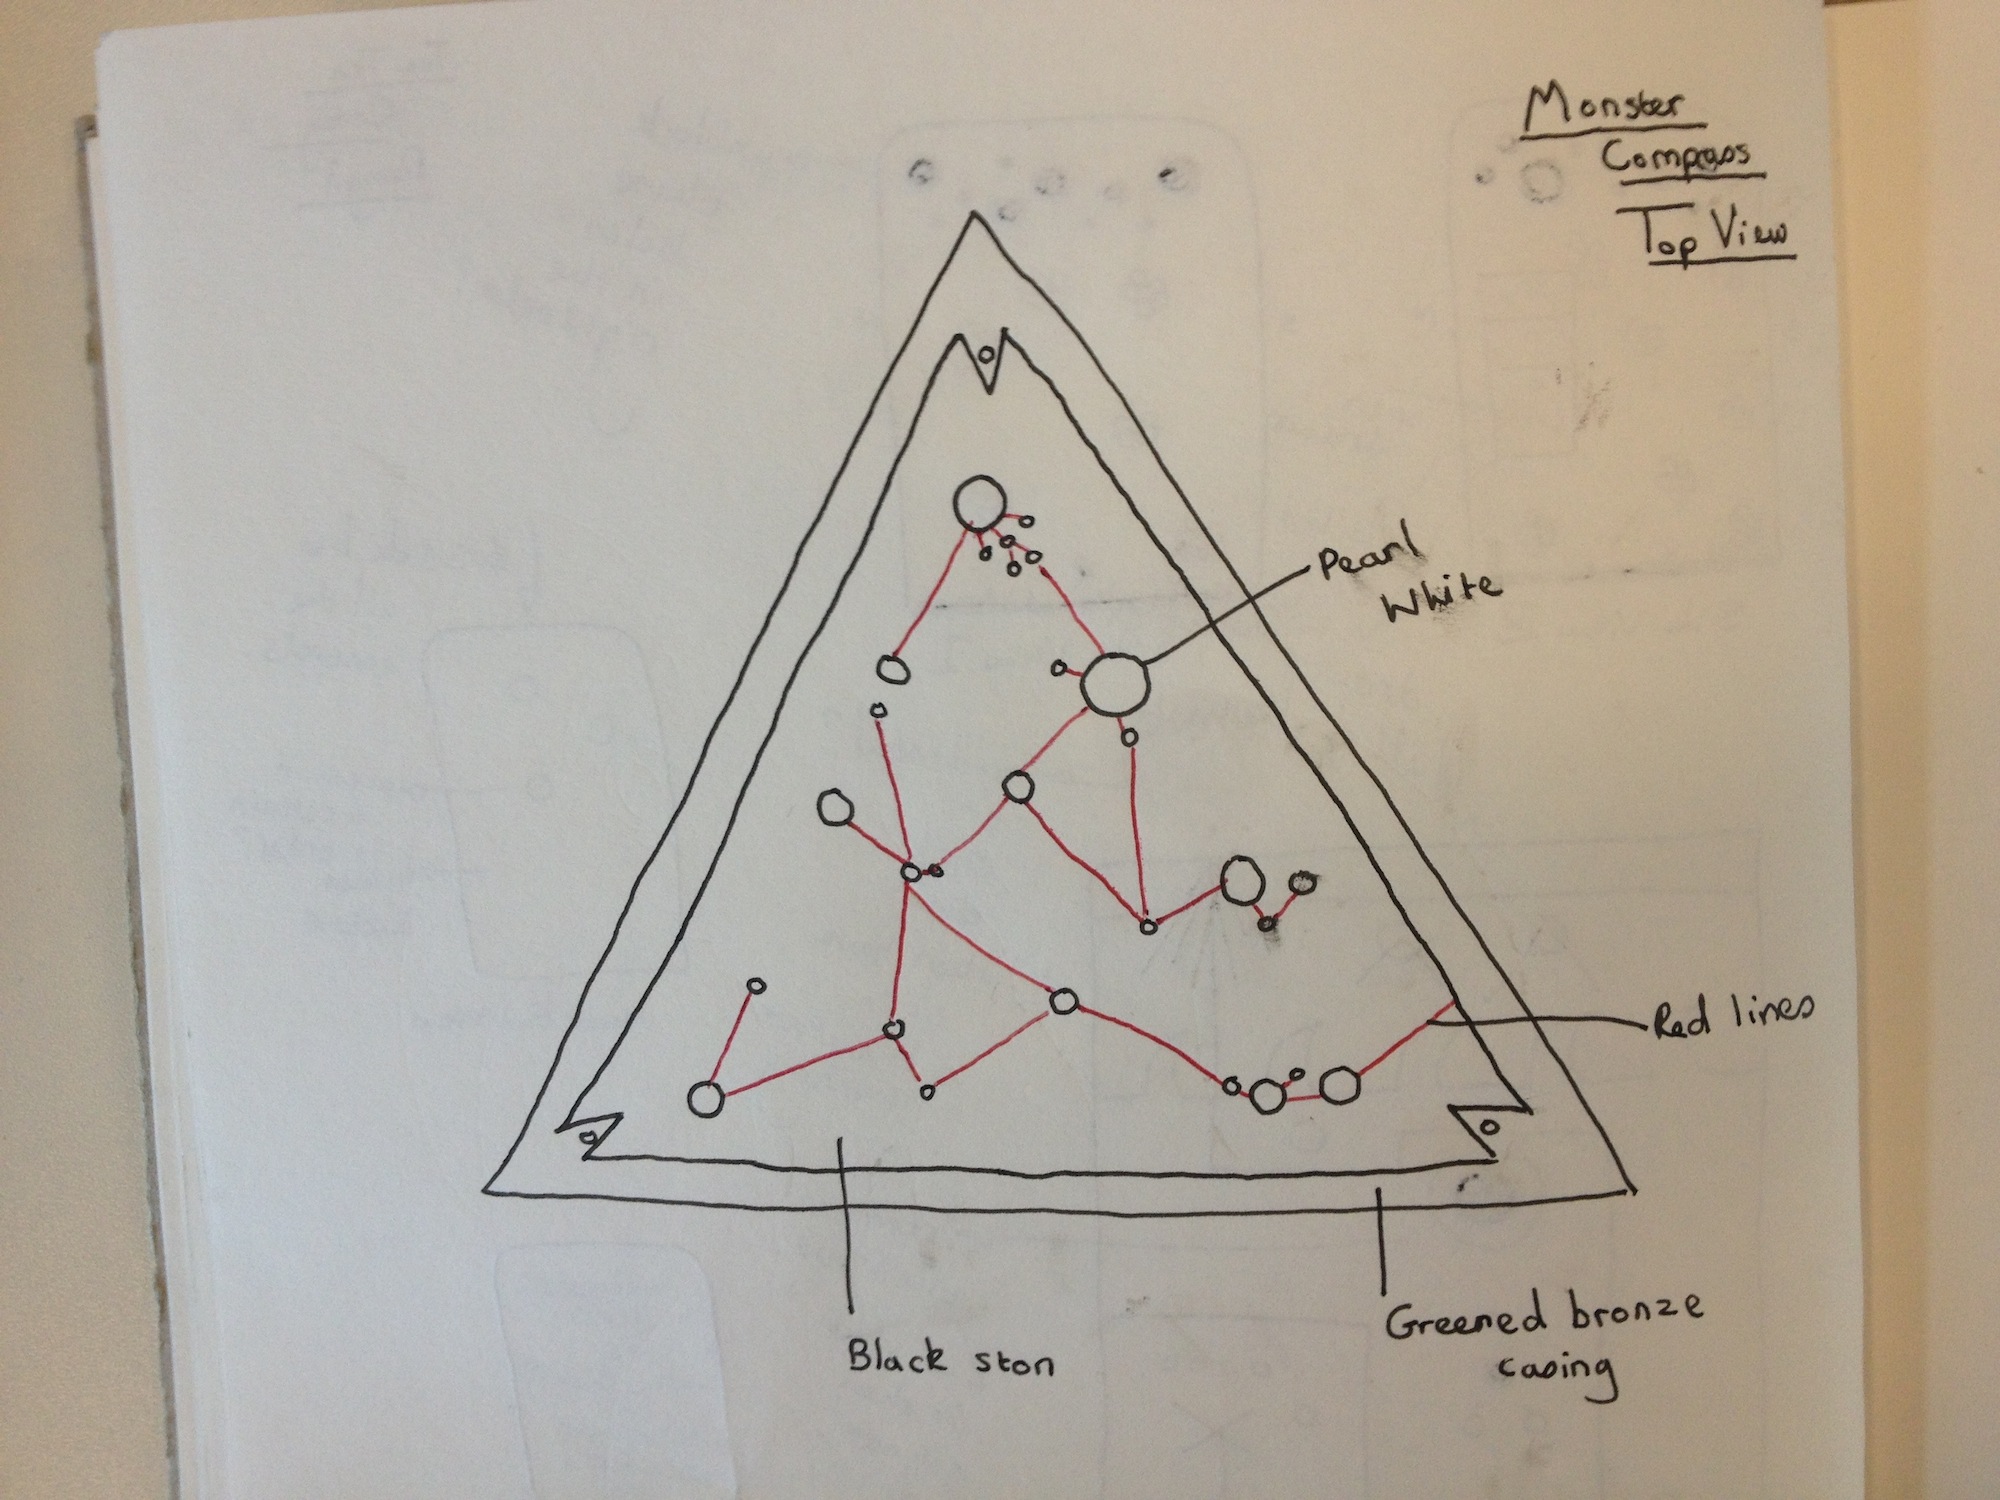 Monster
Compass
Top View
Pearl
White
Red lines
Black ston
Greened bronze
casing